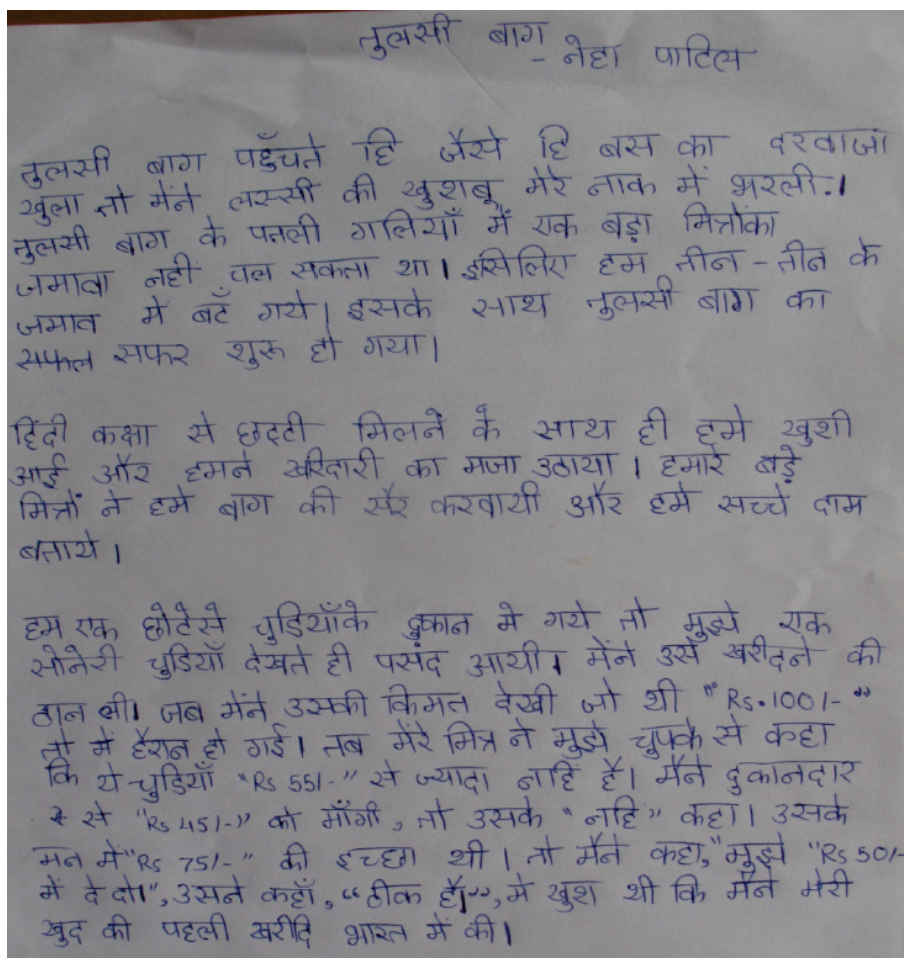 तुलसी बाग
- नेहा पाटिल
तुलसी बाग पहुँचते हि जैसे हि बस का दरवाजा
खुला तो मेंने लस्सी की खुशबू मेरे नाक में भरली.।
तुलसी बाग के पतली गलियाँ में एक बड़ा मित्रोंका
जमावा नही चल सकता था। इसिलिए हम तीन - तीन के
जमाव में बटँ गये। इसके साथ तुलसी बाग का
सफल सफर शुरू हो गया।
हिंदी कक्षा से छट्टी मिलने के साथ ही हमे खुशी
आई और हमने खरिदारी का मजा उठाया। हमारे बड़े
मित्रों ने हमे बाग की सैर करवायी और हमे सच्चे दाम
बताये।
हम एक छोटेसे चुडियाँके दुकान मे गये तो मुझे एक
सोनेरी चुडियाँ देखते ही पसंद आयी। मेंने उसे खरीदने की
ठान ली। जब मेंने उसकी किमत देखी जो थी "Rs.100/-"
तो में हैरान हो गई। तब मेरे मित्र ने मुझे चुपके से कहा
कि ये चुडियाँ "Rs 55/-" से ज्यादा नहिं है। मैने दुकानदार
से "Rs 45/-" को माँगी, तो उसके "नहि" कहा। उसके
मन में "Rs 75/-" की इच्छा थी। तो मैने कहा, "मुझे "Rs 50/-
में दे दो।", उसने कहाँ, "ठीक है।", मे खुश थी कि मैने मेरी
खुद की पहली खरीदि भारत में की।